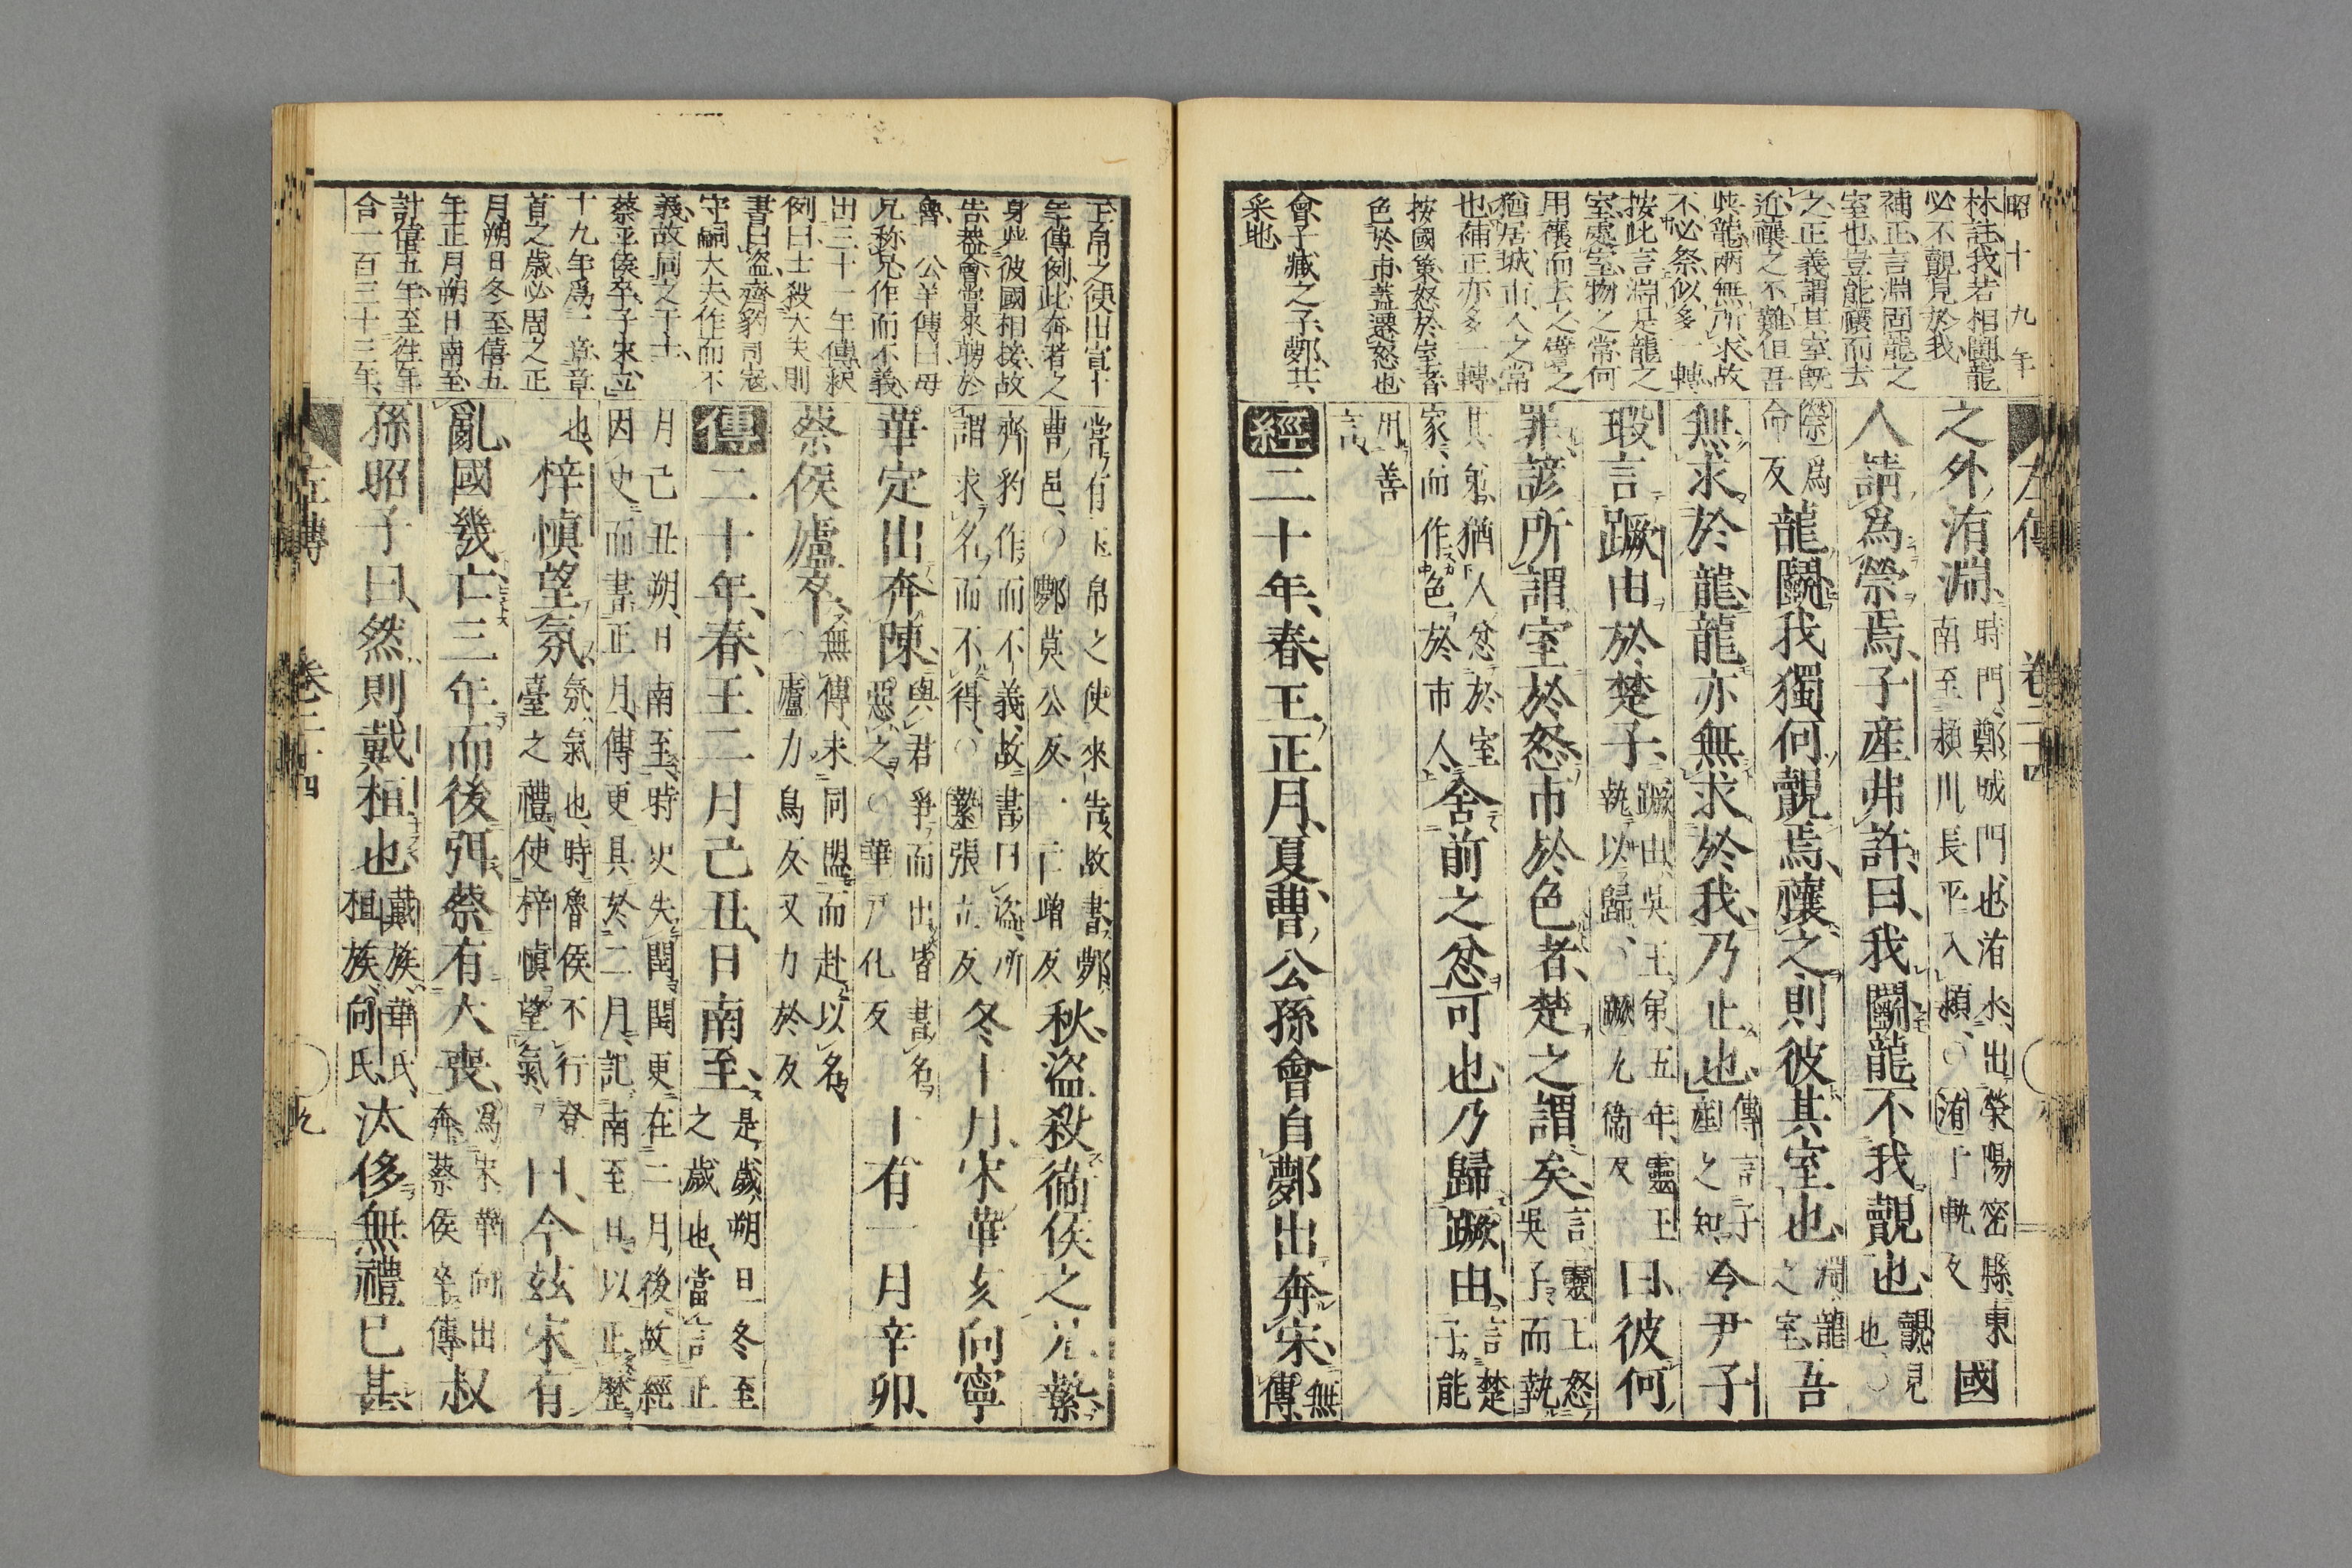 昭十九年
林註我若相鬭龍
必不覿見於我
補正言淵固龍之
室也豈能禳而去
之正義謂其室既
近禳之不難但吾
與龍兩無所求故
不必祭似多一轉
按此言淵是龍之
室處室物之常何
用禳而去之譬之
猶居城市人之常
也補正亦多一轉
按國策怒於室者
色於市蓋遷怒也
會子臧之子鄸其
采地
左傳 卷二十四
之外洧淵時門鄭城門也洧水出滎陽密縣東南至潁川長平入潁○洧于軌反國
人請為禜焉子產弗許曰我鬭龍不我覿也覿見也○
禜爲命反龍鬭我獨何覿焉禳之則彼其室也淵龍之室吾
無求於龍龍亦無求於我乃止也傳言子產之知令尹子
瑕言蹶由於楚子蹶由吳王弟五年靈王執以歸○蹶九衛反曰彼何
罪諺所謂室於怒市於色者楚之謂矣言靈王怒吳子而執
其弟猶人忿於室家而作色於市人舍前之忿可也乃歸蹶由言楚子能
用善言
經二十年春王正月夏曹公孫會自鄸出奔宋無傳
玉帛之使出宣十
年傳例此奔者之
身與彼國相接故
告蓋會嘗來聘於
魯 公羊傳曰母
兄称兄作而不義
出三十一年傳釈
例曰士殺大夫則
書曰盜齊豹司寇
守嗣大夫作而不
義故同之于士
蔡平侯卒子朱立
十九年爲一章章
首之歲必周之正
月朔日冬至僖五
年正月朔日南至
計僖五年至往年
合一百三十三年
嘗有玉帛之使來告故書鄸曹邑○鄸莫公反一亡增反秋盜殺衞侯之兄縶
齊豹作而不義故書曰盜所謂求名而不得○縶張立反冬十月宋華亥向寧
華定出奔陳與君爭而出皆書名惡之○華戸化反十有一月辛卯
蔡侯廬卒無傳未同盟而赴以名○廬力烏反又力於反
傳二十年春王二月己丑日南至是歲朔旦冬至之歲也當言正
月己丑朔日南至時史失閏閏更在二月後故經因史而書正月傳更具於二月記南至日以正歷
也梓慎望氛氛氣也時魯侯不行登臺之禮使梓慎望氣曰今茲宋有
亂國幾亡三年而後弭蔡有大喪爲宋華向出奔蔡侯卒傳叔
孫昭子曰然則戴桓也戴族華氏桓族向氏汏侈無禮已甚
左傳 卷二十四 九